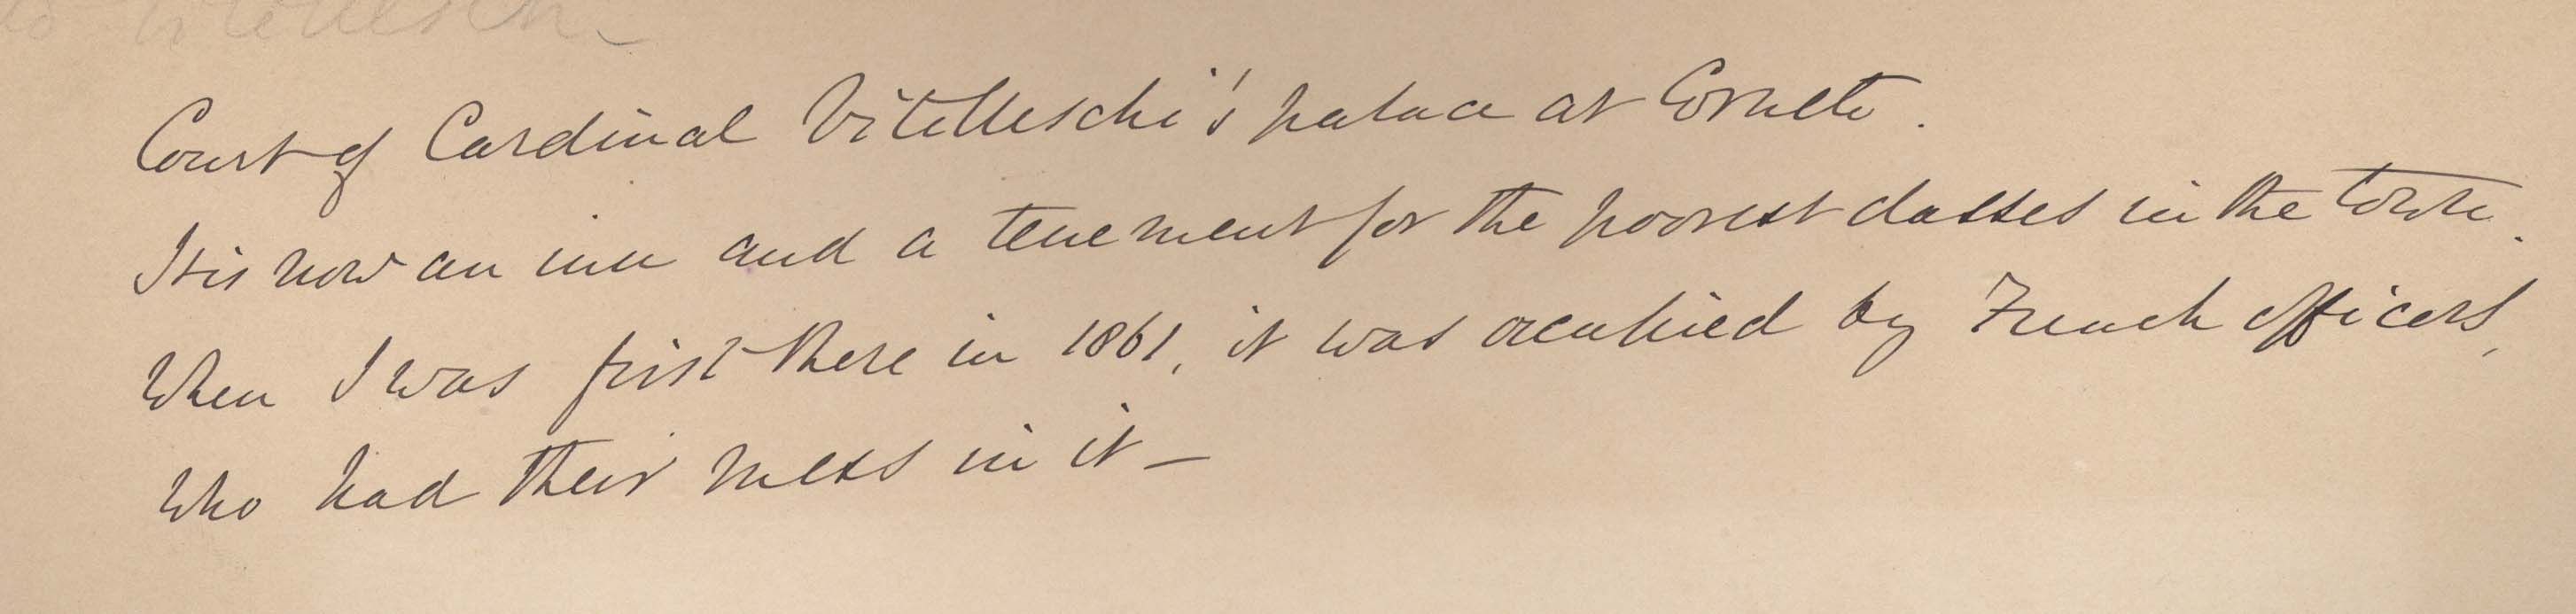 Court of Cardinal Vitelleschi's palace at Corneto.
It is now an inn and a tenement for the poorest classes in the town.
When I was first there in 1861, it was occupied by French officers,
who had their mess in it –